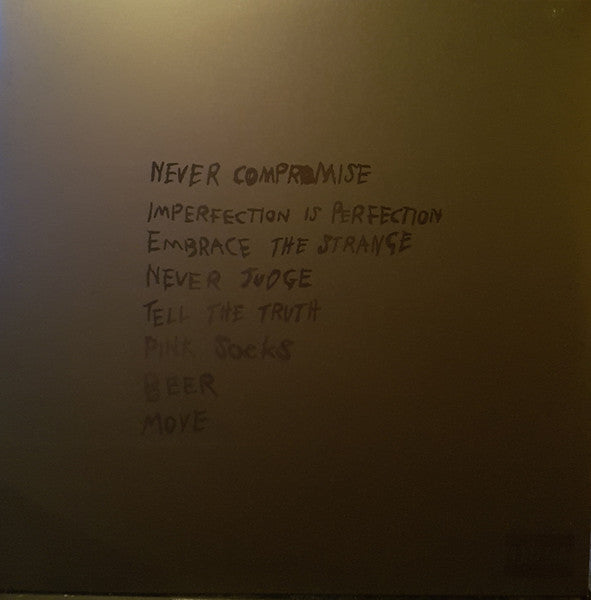 NEVER COMPROMISE
IMPERFECTION IS PERFECTION
EMBRACE THE STRANGE
NEVER JUDGE
TELL THE TRUTH
PINK SOCKS
BEER
MOVE